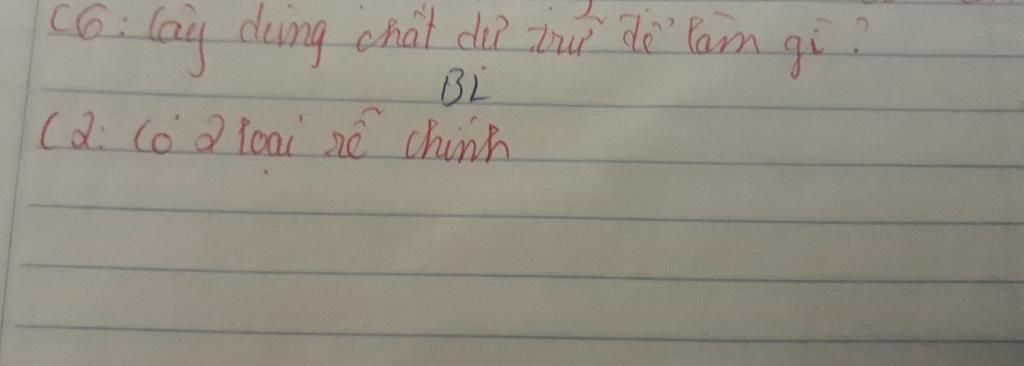 C6: Cây dùng chất dự trữ để làm gì?
BL
C2: Có 2 loại rễ chính